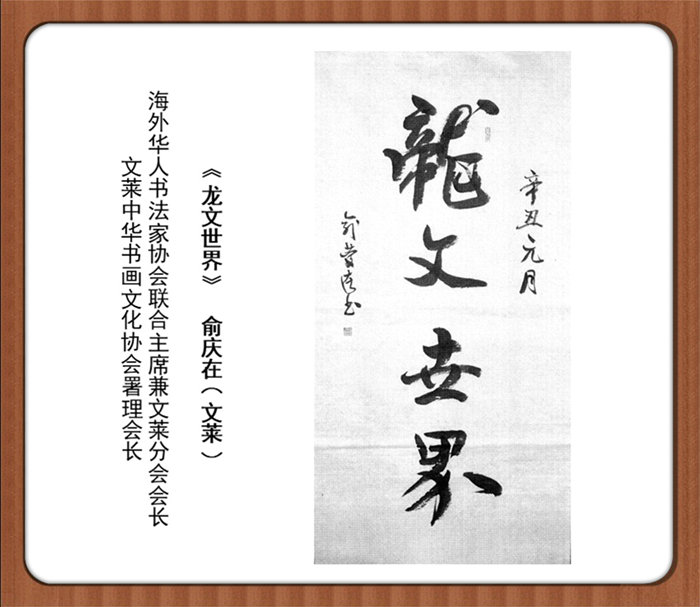 辛丑元月
龍文世界
《龙文世界》 俞庆在(文莱)
海外华人书法家协会联合主席兼文莱分会会长
文莱中华书画文化协会署理会长